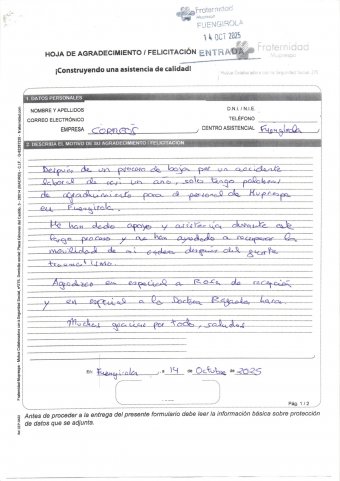 Fraternidad
Muprespa
FUENGIROLA
14 OCT 2025
ENTRADA
Fraternidad
Muprespa
HOJA DE AGRADECIMIENTO / FELICITACIÓN
¡Construyendo una asistencia de calidad!
Mutua Colaboradora con la Seguridad Social, 275
1. DATOS PERSONALES
NOMBRE Y APELLIDOS
D.N.I./N.I.E.
CORREO ELECTRÓNICO
TELÉFONO
EMPRESA CORREOS
CENTRO ASISTENCIAL Fuengirola
2. DESCRIBA EL MOTIVO DE SU AGRADECIMIENTO / FELICITACIÓN
Despues de un proceso de baja por un accidente
laboral de casi un año, solo tengo palabras
de agradecimiento para el personal de Muprespa
en Fuengirola.
Me han dado apoyo y asistencia durante este
largo proceso y me han ayudado a recuperar la
movilidad de mi cadera despues del fuerte
traumatismo.
Agradezco en especial a Rosa de recepción
y en especial a la Doctora Lara.
Muchas gracias por todo, saludos
En Fuengirola, a 14 de Octubre de 2025
Pág. 1 / 2
Antes de proceder a la entrega del presente formulario debe leer la información básica sobre protección
de datos que se adjunta.